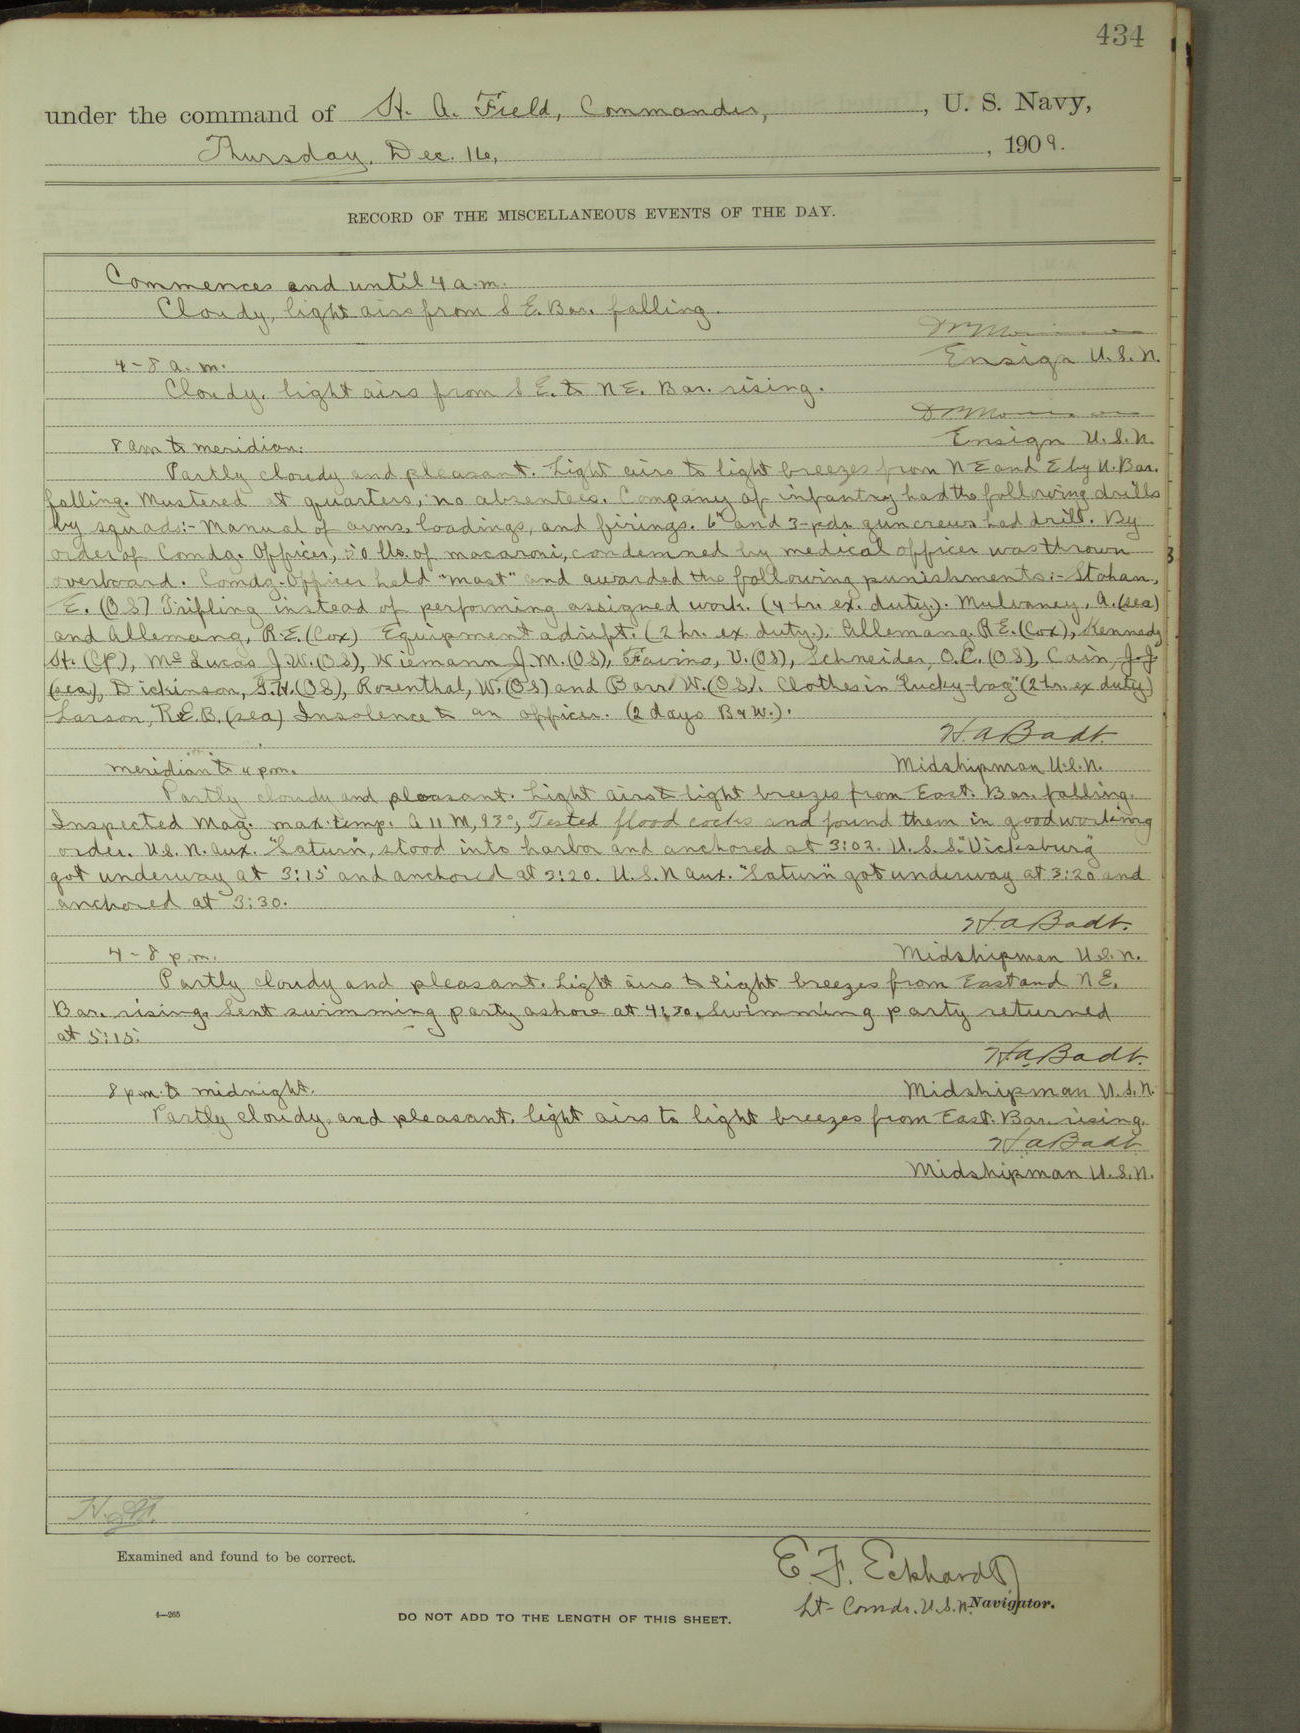 434
under the command of H. A. Field, Commander, , U. S. Navy,
Thursday, Dec. 16, , 1909.
RECORD OF THE MISCELLANEOUS EVENTS OF THE DAY.
Commences and until 4 a.m.
Cloudy, light airs from S E. Bar. falling.
Ensign U.S.N.
4-8 a.m.
Cloudy. light airs from S E. to N E. Bar. rising.
Ensign U.S.N.
8 am to meridian:
Partly cloudy and pleasant. Light airs to light breezes from N E and E by N. Bar.
falling. Mustered at quarters, no absentees. Company of infantry had the following drills
by squads:- Manual of arms, loadings, and firings. 6" and 3-pdr gun crews had drill. By
order of Comdg. Officer, 50 lbs. of macaroni, condemned by medical officer was thrown
overboard. Comdg. Officer held "mast" and awarded the following punishments:- Stohan,
E. (OS) Trifling instead of performing assigned work. (4 hr. ex. duty.). Mulvaney, A. (sea)
and Allemang, R.E. (Cox) Equipment adrift. (2 hr. ex. duty.), Allemang. R.E. (Cox), Kennedy
H. (CP), McLucas J.W. (OS), Wiemann J.M. (OS), Favino, V. (OS), Schneider, O.C. (OS), Cain, J.J
(sea), Dickinson, G.H. (OS), Rosenthal, W. (OS) and Barr W. (OS). Clothes in "lucky-bag" (2 hr. ex duty)
Larson, R.E.B. (sea) Insolence to an officer. (2 days B & W.).
H. A Badt.
meridian to 4 pm. Midshipman U.S.N.
Partly cloudy and pleasant. Light airs to light breezes from East. Bar. falling.
Inspected Mag. max. temp. A 11 M, 93°, Tested flood cocks and found them in good working
order. U.S.N. aux. "Saturn, stood into harbor and anchored at 3:02. U.S.S. "Vicksburg"
got underway at 3:15 and anchored at 3:20. U.S.N aux. "Saturn" got underway at 3:20 and
anchored at 3:30.
H. A Badt.
4-8 p.m. Midshipman U.S.N.
Partly cloudy and pleasant. Light airs to light breezes from East and N E.
Bar. rising. Sent swimming party ashore at 4:30. Swimming party returned
at 5:15.
H. A. Badt.
8 pm. to midnight. Midshipman U.S.N.
Partly cloudy and pleasant. light airs to light breezes from East. Bar. rising.
H. A Badt
Midshipman U.S.N.
Examined and found to be correct.
E. F. Eckhardt
Lt-Comdr. U.S.N. Navigator.
4—265
DO NOT ADD TO THE LENGTH OF THIS SHEET.